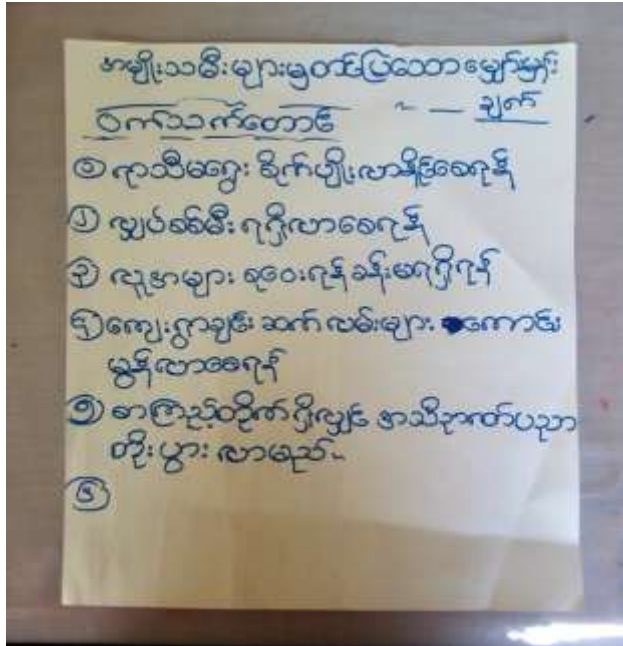 အမျိုးသမီးများမှတင်ပြသော မျှော်မှန်း
ချက်
ဝက်သက်တောင်
၁ ရာသီမရွေး စိုက်ပျိုးလာနိုင်စေရန်
၂ လျှပ်စစ်မီး ရရှိလာစေရန်
၃ လူအများ စုဝေးရန် ခန်းမရရှိရန်
၄ ကျေးရွာချင်း ဆက်လမ်းများ ကောင်း
မွန်လာစေရန်
၅ စာကြည့်တိုက် ရှိလျှင် အသိဉာဏ်ပညာ
တိုးပွားလာမည်။
၆